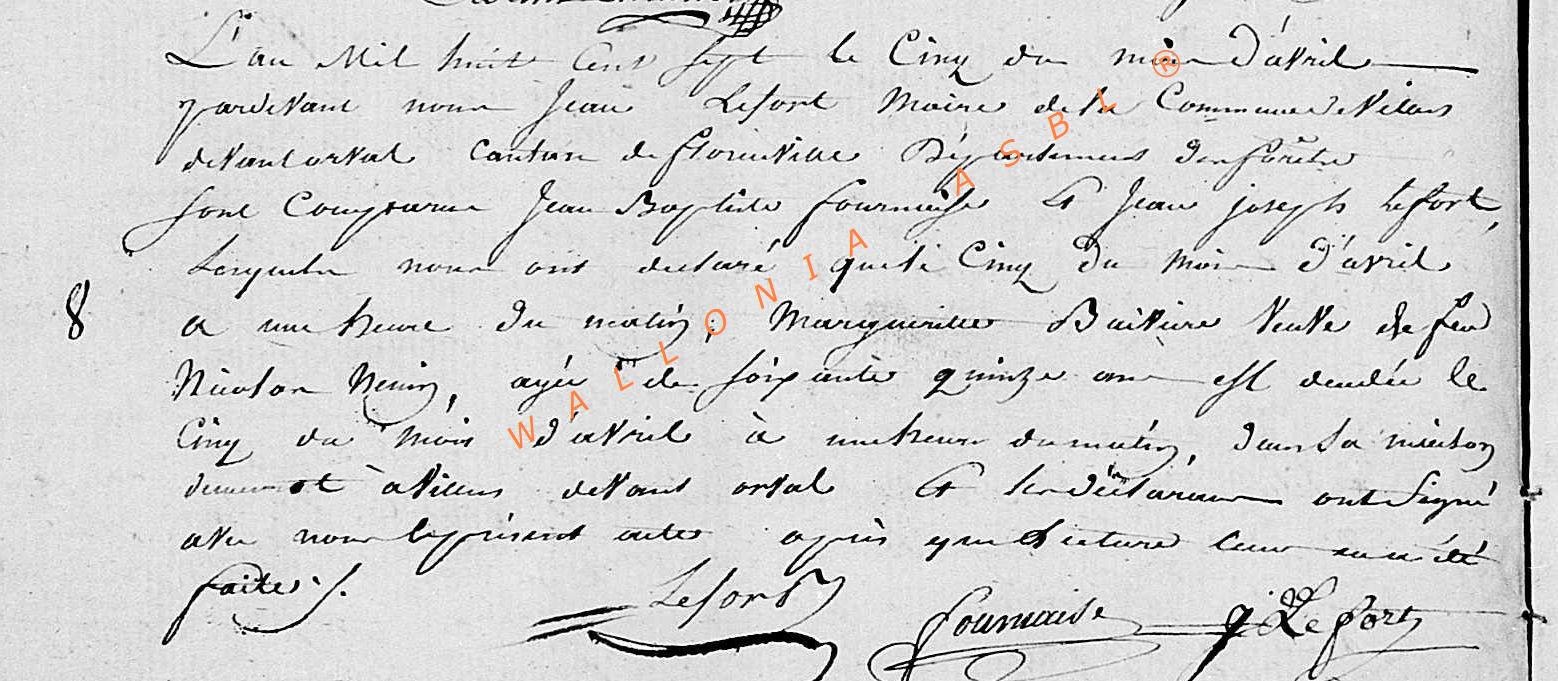 L'an Mil huit Cent sept le Cinq du mois D'avril
pardevant nous Jean Lefort Maire de la Commune de Villers
devant orval Canton de florenville Département des forêts
sont Comparus Jean Baptiste fournaise et Jean joseph Lefort,
Lesquels nous ont declaré que le Cinq du mois d'avril
8 a une heure du matin, Marguerite veuve de feu
Nicolas Henin, agée de soixante quinze ans est décédée le
Cinq du Mois d'avril à une heure du matin, dans sa maison
a Villers devant orval et les déclarans ont signé
avec nous le présent acte après que lecture leur en a été
faite
Lefort fournaise j Le fort
WALLONIA ASBL ®